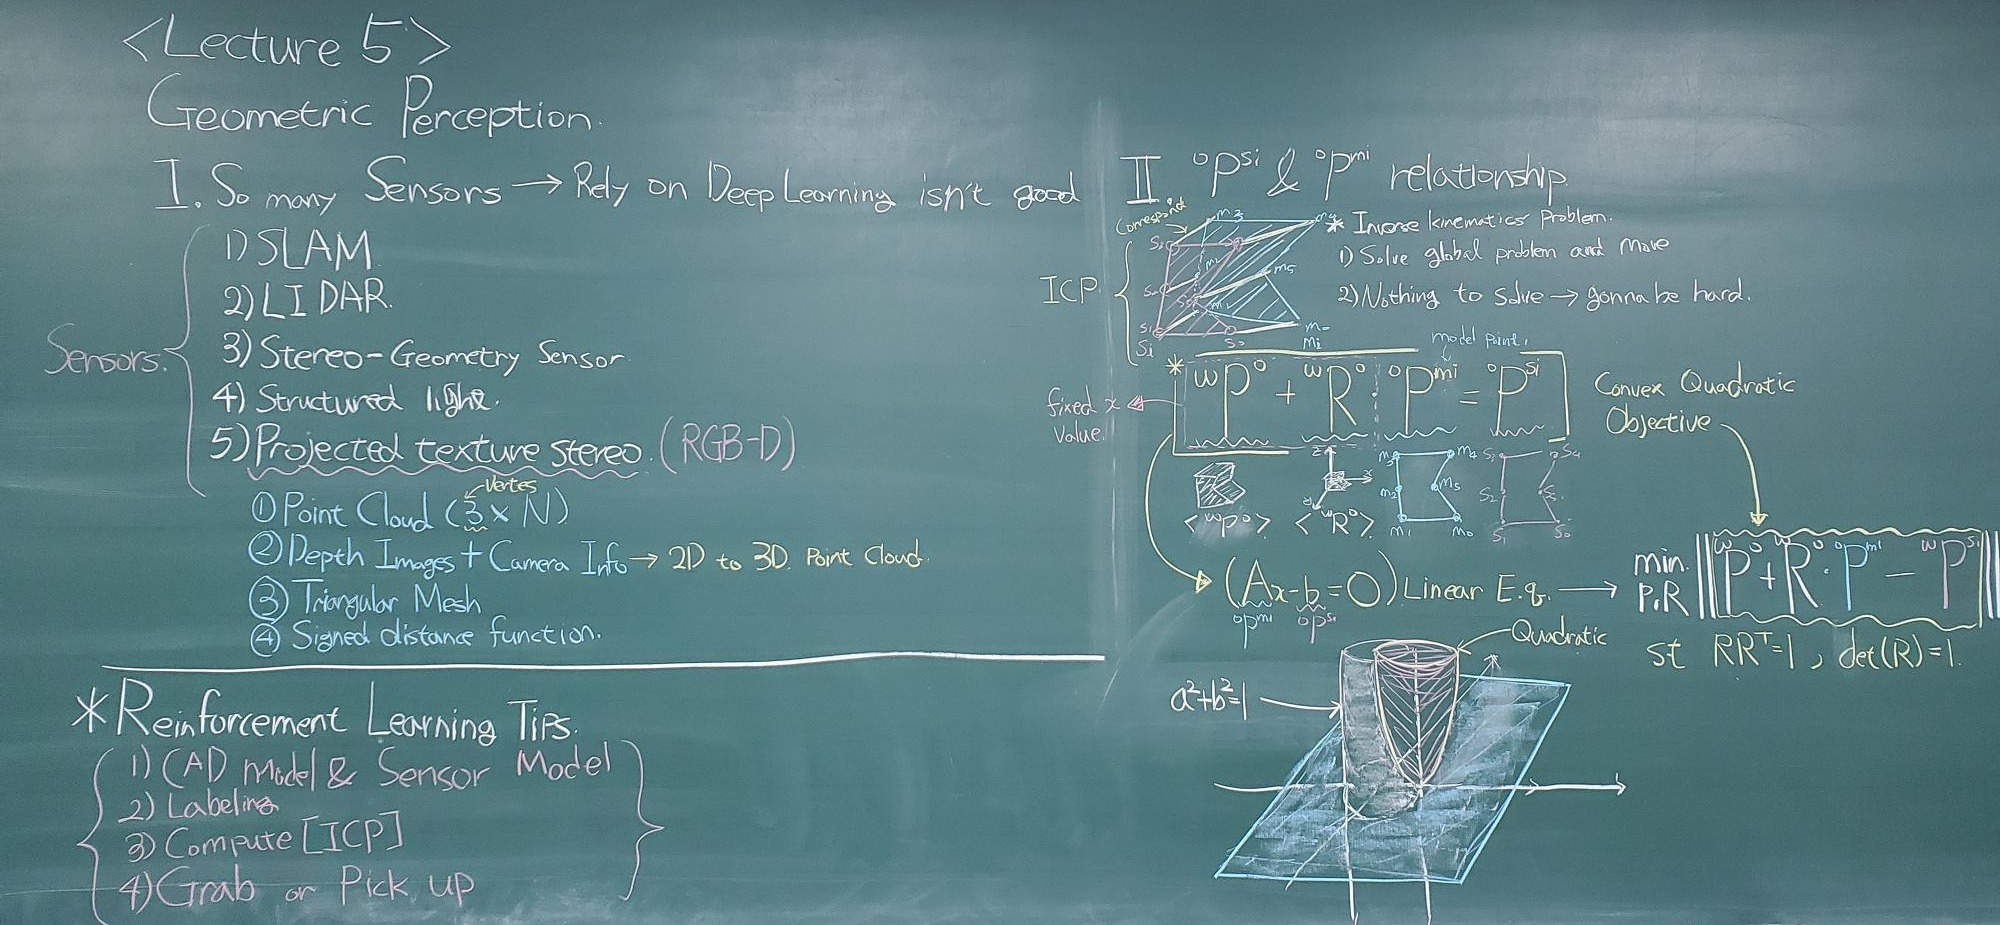 <Lecture 5>
Geometric Perception.
I. So many Sensors → Rely on Deep Learning isn't good
Sensors.
1) SLAM
2) LIDAR.
3) Stereo-Geometry Sensor
4) Structured light.
5) Projected texture stereo. (RGB-D)
Vertes
① Point Cloud (3 × N)
② Depth Images + Camera Info → 2D to 3D. Point Cloud.
③ Triangular Mesh
④ Signed distance function.
*Reinforcement Learning Tips.
1) CAD Model & Sensor Model
2) Labeling
3) Compute [ICP]
4) Grab or Pick up
II. ᴼP^si & ᴼP^mi relationship.
Correspond
ICP.
* Inverse kinematics Problem.
1) Solve global problem and move
2) Nothing to solve → gonna be hard.
m3
m5
S1
Si
Mi
model point.
* ʷPᴼ + ʷRᴼ · ᴼP^mi = ᴼP^si
fixed x
Value.
Convex Quadratic
Objective
<ʷPᴼ> <ʷRᴼ>
m2 m5 m1 m0
S2 S1 S0
(Ax-b=0) Linear E.q. →
ᴼP^mi ᴼP^si
min. P,R ||ʷPᴼ + ʷRᴼ · ᴼP^mi − ʷP^si||
st RRᵀ=1, det(R)=1.
Quadratic
a²+b²=1